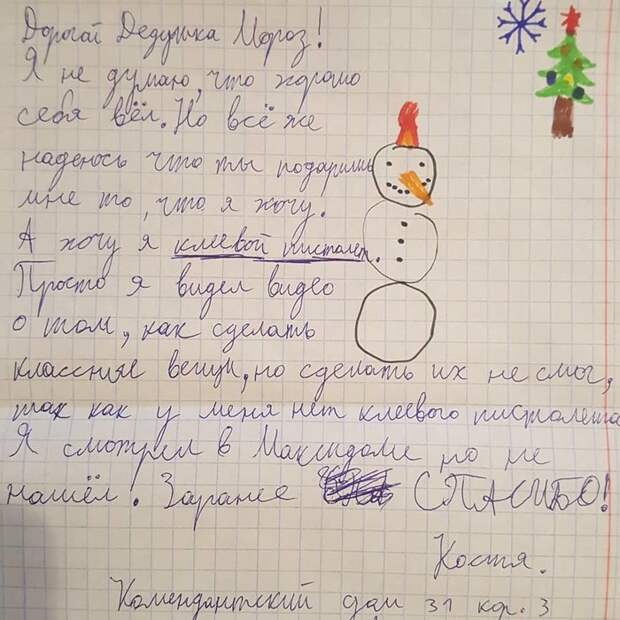 Дорогай Дедушка Мороз!
Я не думаю, что хорошо
себя вёл. Но всё же
надеюсь что ты подаришь
мне то, что я хочу.
А хочу я клеевой пистолет.
Просто я видел видео
о том, как сделать
классние вещи, но сделать их не смог,
так как у меня нет клеевого пистолета
Я смотрел в Максидоме но не
нашёл! Заранее СПАСИБО!
Костя.
Комендантский дом 31 кор. 3